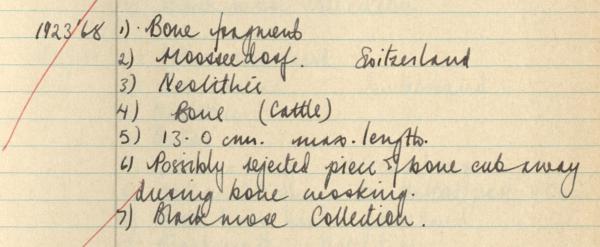 1923'68 1) Bone fragment
2) Moosseedorf. Switzerland
3) Neolithic
4) Bone (Cattle)
5) 13.0 cm. max. length.
6) Possibly rejected piece of bone cut away
during bone working.
7) Blackmore Collection.